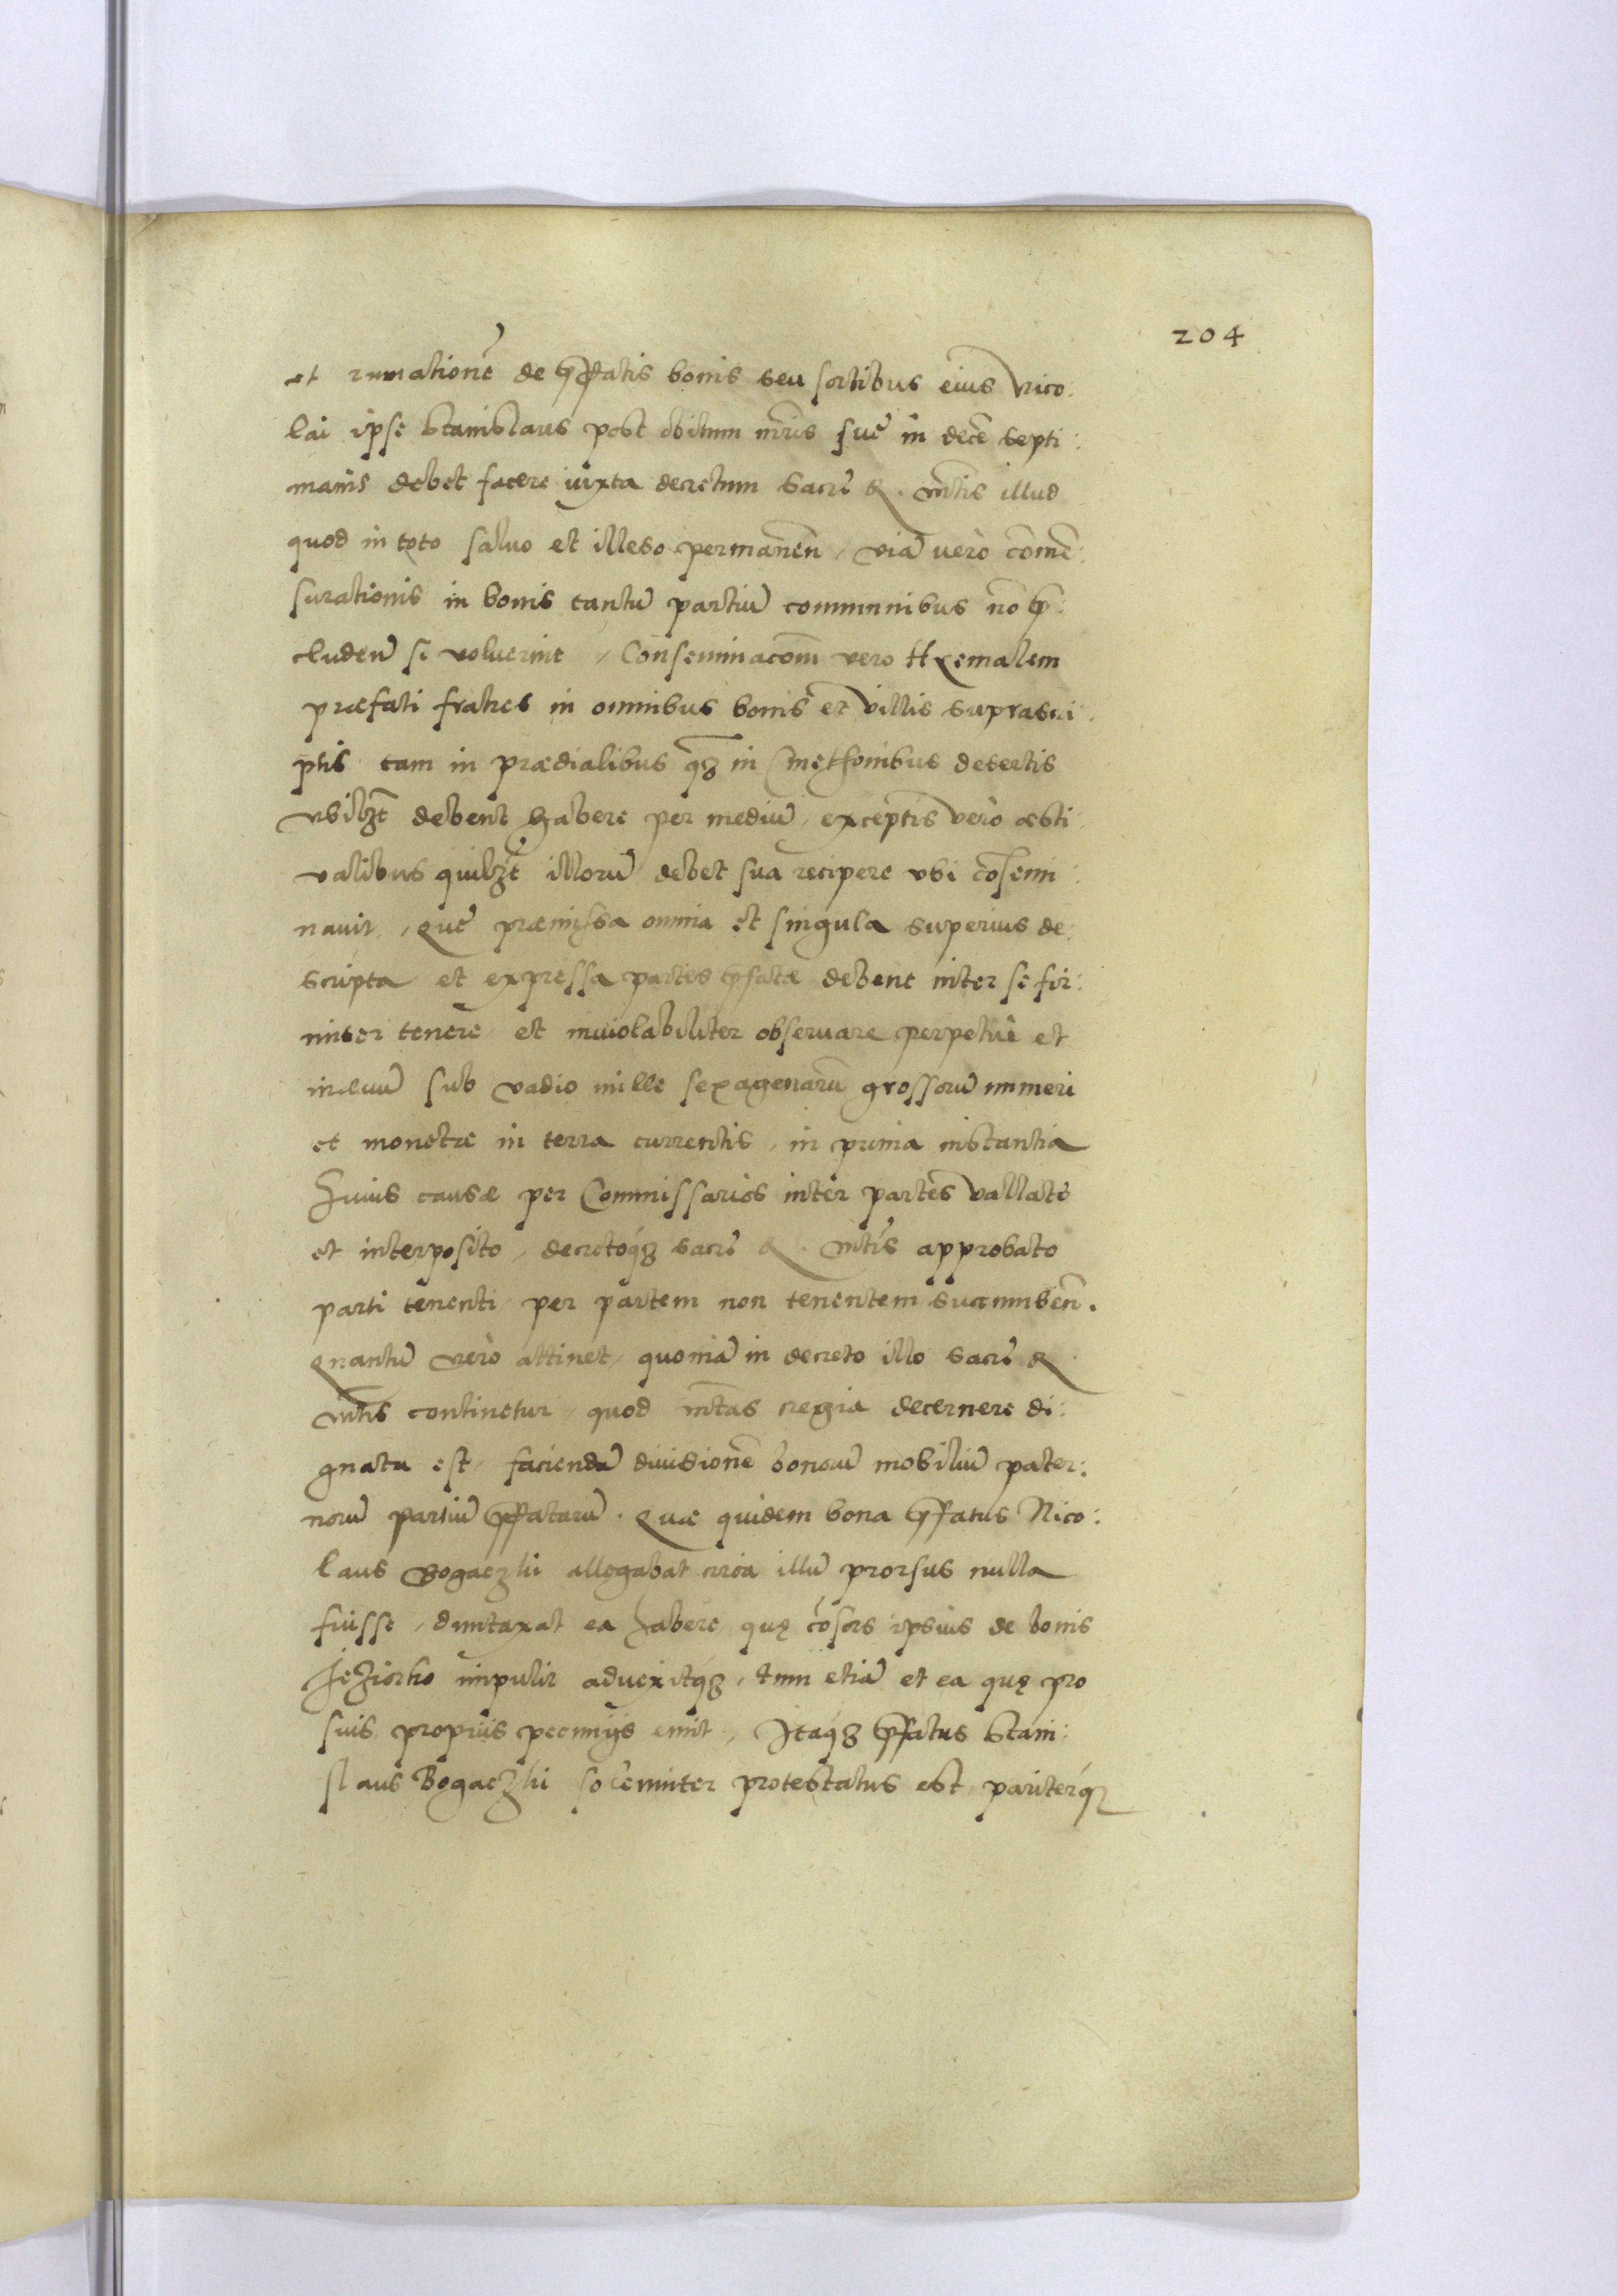 204
et rumationē de p̄fatis bonis seu sortibus eius Nico:
lai ipse Stanislaus post obitum mr̄is suę in decē septi:
manis debet facere iuxta decretum Sacrę R. Mt̄is illud
quod in toto saluo et illeso permanen̄, via vero com̄ē:
surationis in bonis tantū partiū communibus nō p̄:
cluden̄ si voluerint, Conseminacōm vero Hyemalem
præfati fratres in omnibus bonis et villis suprascri:
ptis tam in prædialibus q̄z in Cmethonibus desertis
vbilzt debent habere per mediū, exceptis vero æsti:
valibus quilzt illorū debet sua recipere vbi cōsemi:
nauit, Quę præmissa omnia et singula superius de:
scripta et expressa partes p̄fatæ debent inter se fir:
miter tenere et inuiolabiliter obseruare perpetue et
inæuū sub vadio mille sexagenarū grossorū numeri
et monetæ in terra currentis, in prima instantia
huius causæ per Commissarios inter partes vallato
et interposito, decretoq́z sacrę R. Mt̄is approbato
parti tenenti per partem non tenentem succumben̄.
Quantū vero attinet, quoniā in decreto illo sacrę R.
Mt̄is continetur, quod mt̄as regia decernere di:
gnata est, faciendā diuisionē bonorū mobiliū pater:
norū partiū p̄fatarū. Quæ quidem bona p̄fatus Nico:
laus Bogaczki allegabat circa illū prorsus nulla
fuisse, duntaxat ea habere quę cōsors ipsius de bonis
Jeziorko impulit aduexitq́z, tum etiā et ea quę pro
suis proprijs pecunijs emit, Itaq́z p̄fatus Stani:
slaus Bogaczki solēniter protestatus est, pariterq́z